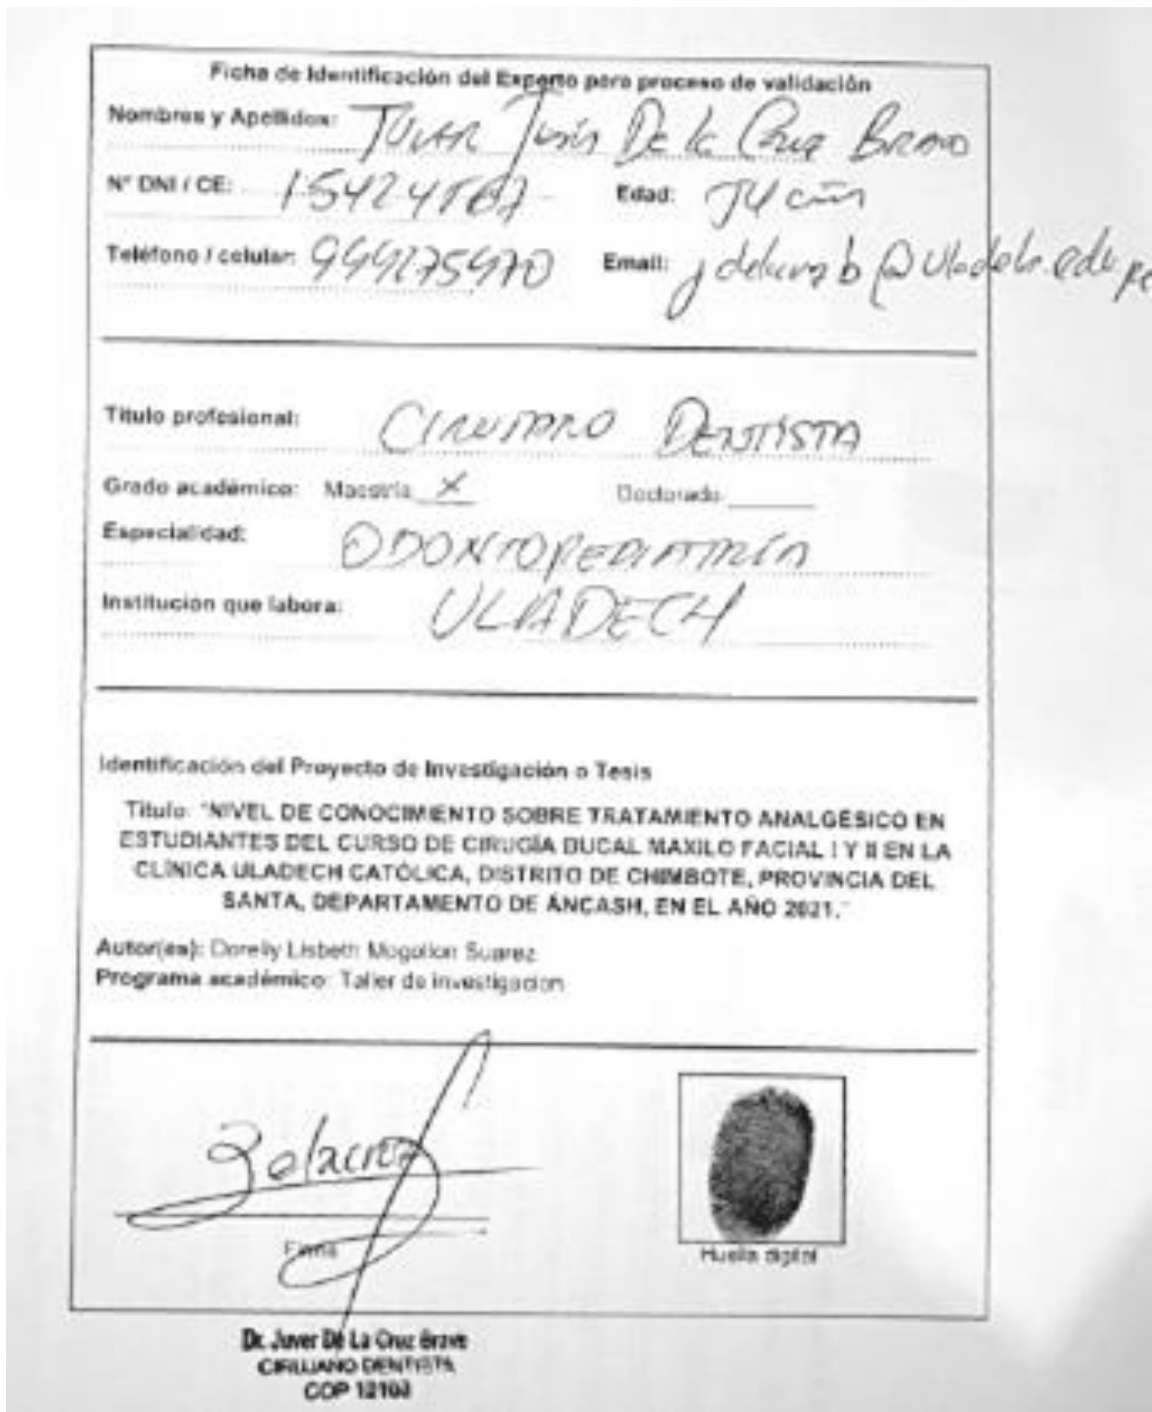 Ficha de Identificación del Experto para proceso de validación
Nombres y Apellidos: Juver Jesús De la Cruz Bravo
N° DNI / CE: Edad:
Teléfono / celular: Email:
Título profesional: CIRUJANO DENTISTA
Grado académico: Maestría X Doctorado
Especialidad: ODONTOPEDIATRÍA
Institución que labora: ULADECH
Identificación del Proyecto de Investigación o Tesis
Título: "NIVEL DE CONOCIMIENTO SOBRE TRATAMIENTO ANALGÉSICO EN
ESTUDIANTES DEL CURSO DE CIRUGÍA BUCAL MAXILO FACIAL I Y II EN LA
CLÍNICA ULADECH CATÓLICA, DISTRITO DE CHIMBOTE, PROVINCIA DEL
SANTA, DEPARTAMENTO DE ÁNCASH, EN EL AÑO 2021."
Autor(es): Dorelly Lisbeth Mogollon Suarez
Programa académico: Taller de investigacion
Firma
Huella digital
Dr. Juver De La Cruz Bravo
CIRUJANO DENTISTA
COP